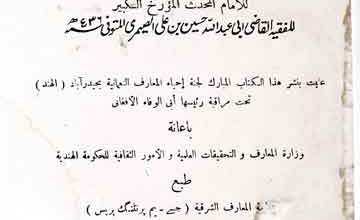 للامام المحدث المؤرخ الكبير
للفقيه القاضى ابى عبد الله حسين بن على الصيمرى المتوفى سنه ٤٣٦ھ
عنيت بنشر هذا الكتاب المبارك لجنة إحياء المعارف النعمانية بحيدرآباد ( الهند )
تحت مراقبة رئيسها أبى الوفاء الأفغانى
باعانة
وزارة المعارف و التحقيقات العلمية و الأمور الثقافية للحكومة الهندية
طبع
المعارف الشرقية ( جے - يم پرنٹنگ پريس )